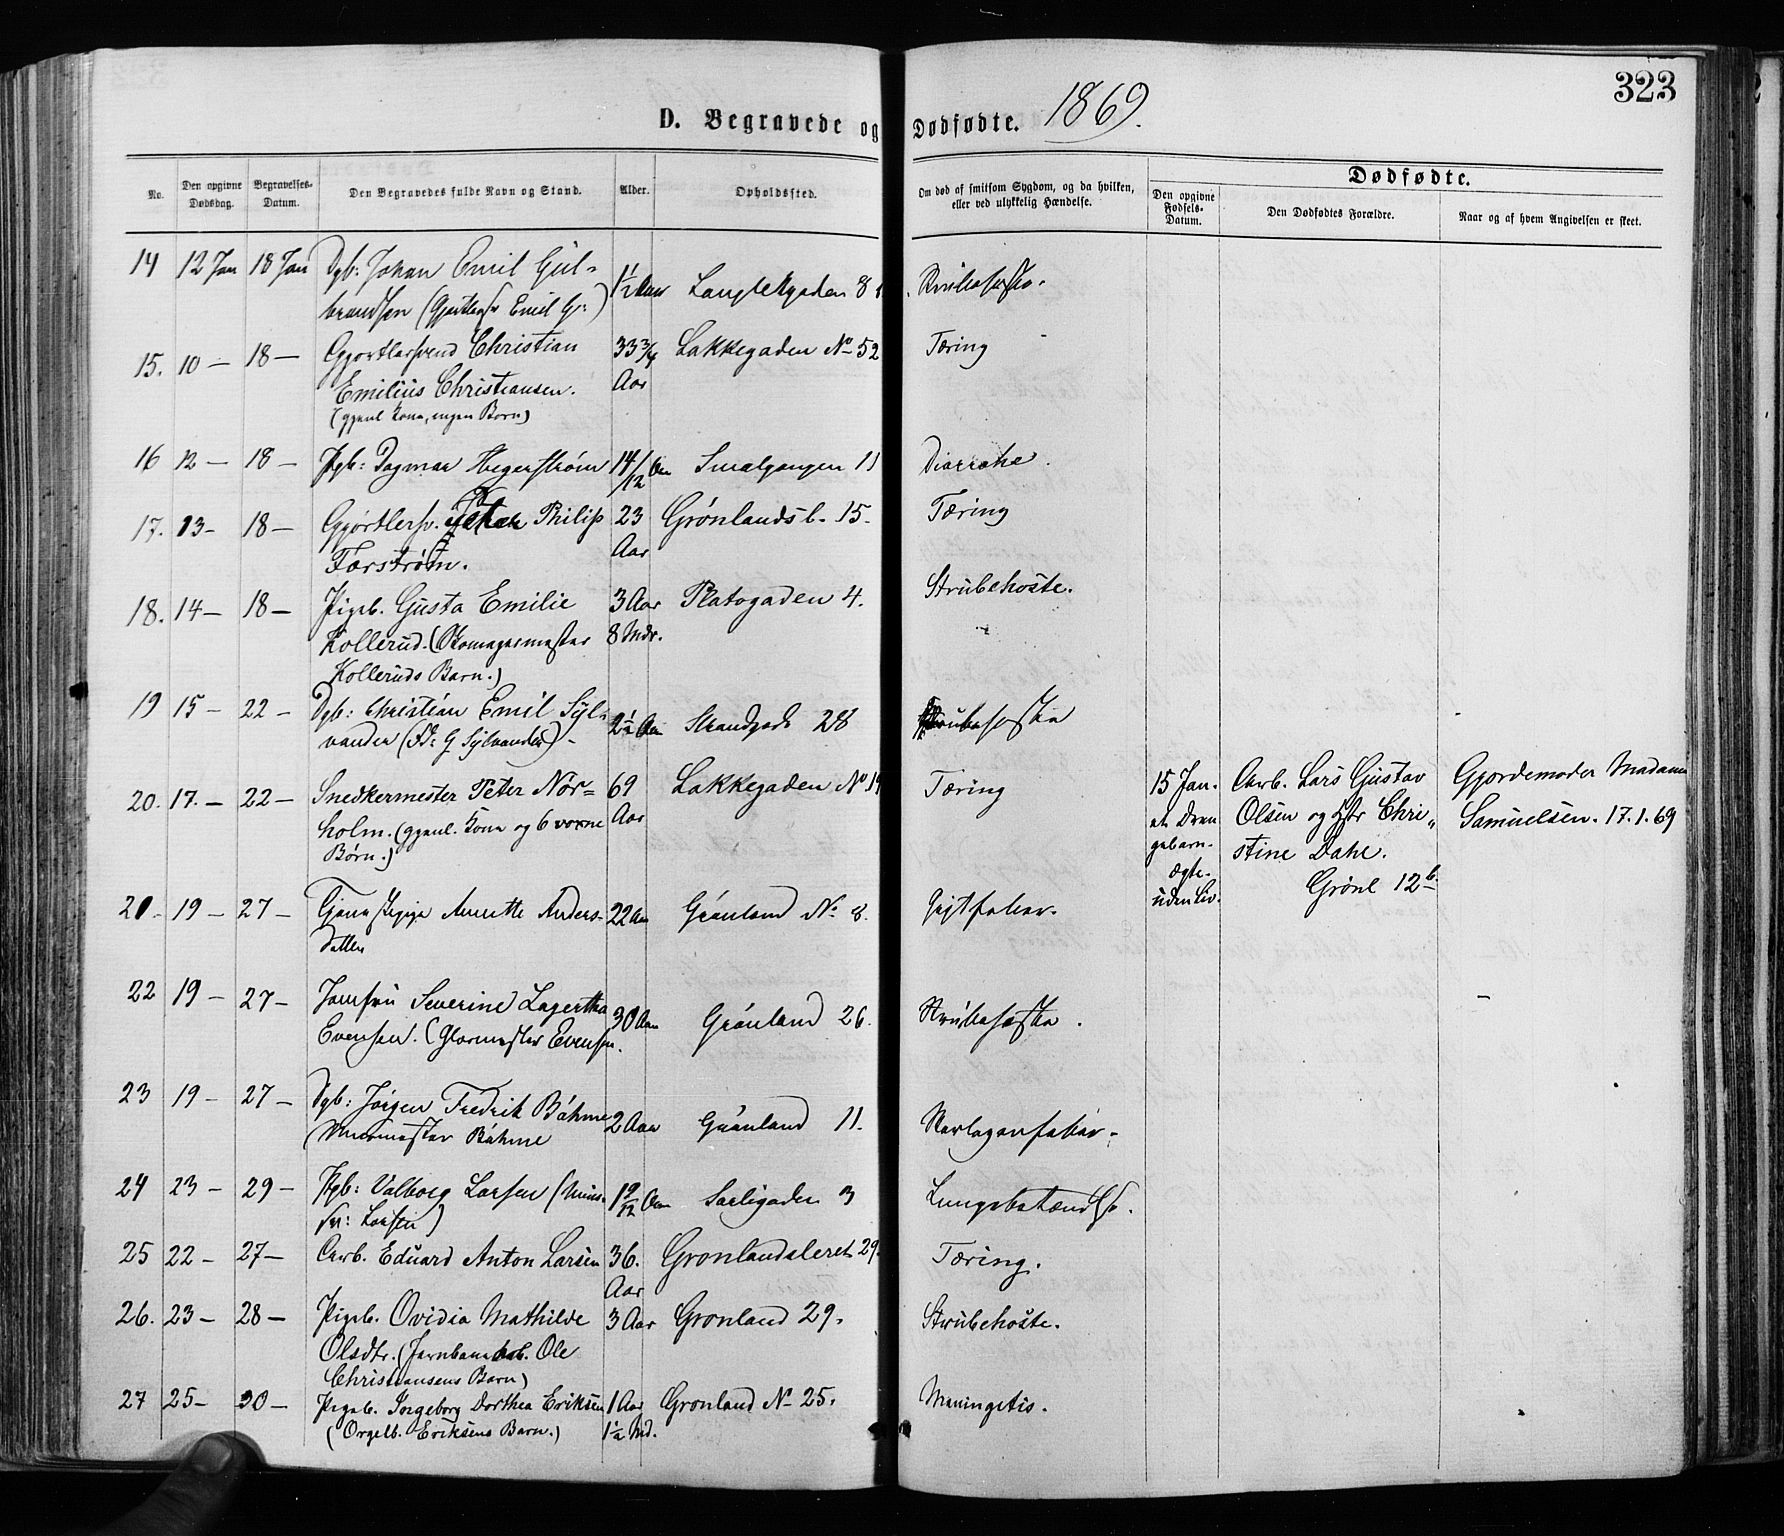 323
D. Begravede og Dødfødte. 1869.
No.
Den opgivne Dødsdag.
Begravelses-Datum.
Den Begravedes fulde Navn og Stand.
Alder.
Opholdssted.
Om død af smitsom Sygdom, og da hvilken,
eller ved ulykkelig Hændelse.
Dødfødte.
Den opgivne Fødsels-Datum.
Den Dødfødtes Forældre.
Naar og af hvem Angivelsen er skeet.
14 12 Jan 18 Jan Dgb: Johan Emil Gul-
brandsen (Gjørtlersv Emil G:) 1 1/2 Aar Langlekgaden 8 Strubehoste.
15. 10 — 18 — Gjørtlersvend Christian 33 3/4 Lakkegaden No 52 Tæring
Emilius Christiansen. Aar
(gjenl Kone, ingen Børn)
16 12 — 18 — Pgb: Dagmar Hegerstrøm 1 4/12 Aar Smalgangen 11 Diarrohe.
17. 13 — 18 — Gjørtlersv. Peter Philip 23 Grønlandsl. 15. Tæring
Forstrøm. Aar
18. 14 — 18 — Pigeb. Gusta Emilie 3 Aar Platogaden 4. Strubehoste.
Kollerud. (Skomagermester 8 Mdr.
Kolleruds Barn.)
19 15 — 22 — Dgb: Christian Emil Syl-
vander (G Sylvander) — 2 1/2 Aar Strandgade 28 Strubehoste
20. 17. — 22 — Snedkermester Peter Nor= 69 Lakkegaden No 19 Tæring
holm. (gjenl. Kone og 6 voxne Aar
Børn.)
15 Jan.
et Dren
gebarn.
Ægte.
uden Liv.
Arb. Lars Gustav
Olsen og Hstr Chri„
stine Dahl.
Grønl 12b.
Gjordemoder Madame
Samuelsen. 17.1.69
21. 19 — 27 — Tjenestepige Anette Anders- 22 Aar Grønland No. 8. Gigtfeber.
datter
22 19 — 27 — Jomfru Severine Lagertha
Evensen. (Glarmester Evensen. 30 Aar Grønland 26. Strubehoste.
23 19 — 27 — Dgb: Jørgen Fredrik Bøhme
(Murmester Bøhme 2 Aar Grønland 11. Skarlagensfeber.
24 23 — 29 — Pgb: Valborg Larsen (Muur-
sv: Larsen) 1 9/12 Aar Sarligaden 3 Lungebetændelse.
25 22 — 27 — Arb. Eduard Anton Larsen 36. Grønlandsleret 29. Tæring.
Aar
26. 23 — 28 — Pigeb. Ovidia Mathilde 3 Aar Grønland 29. Strubehoste.
Olsdtr. (Jernbanearb. Ole
Christiansens Barn)
27 25 — 30 — Pigeb. Ingeborg Dorthea Eriksen 1 Aar Grønland No 25. Meningetis.
(Orgelb. Eriksens Barn.) 1 1/2 Md.